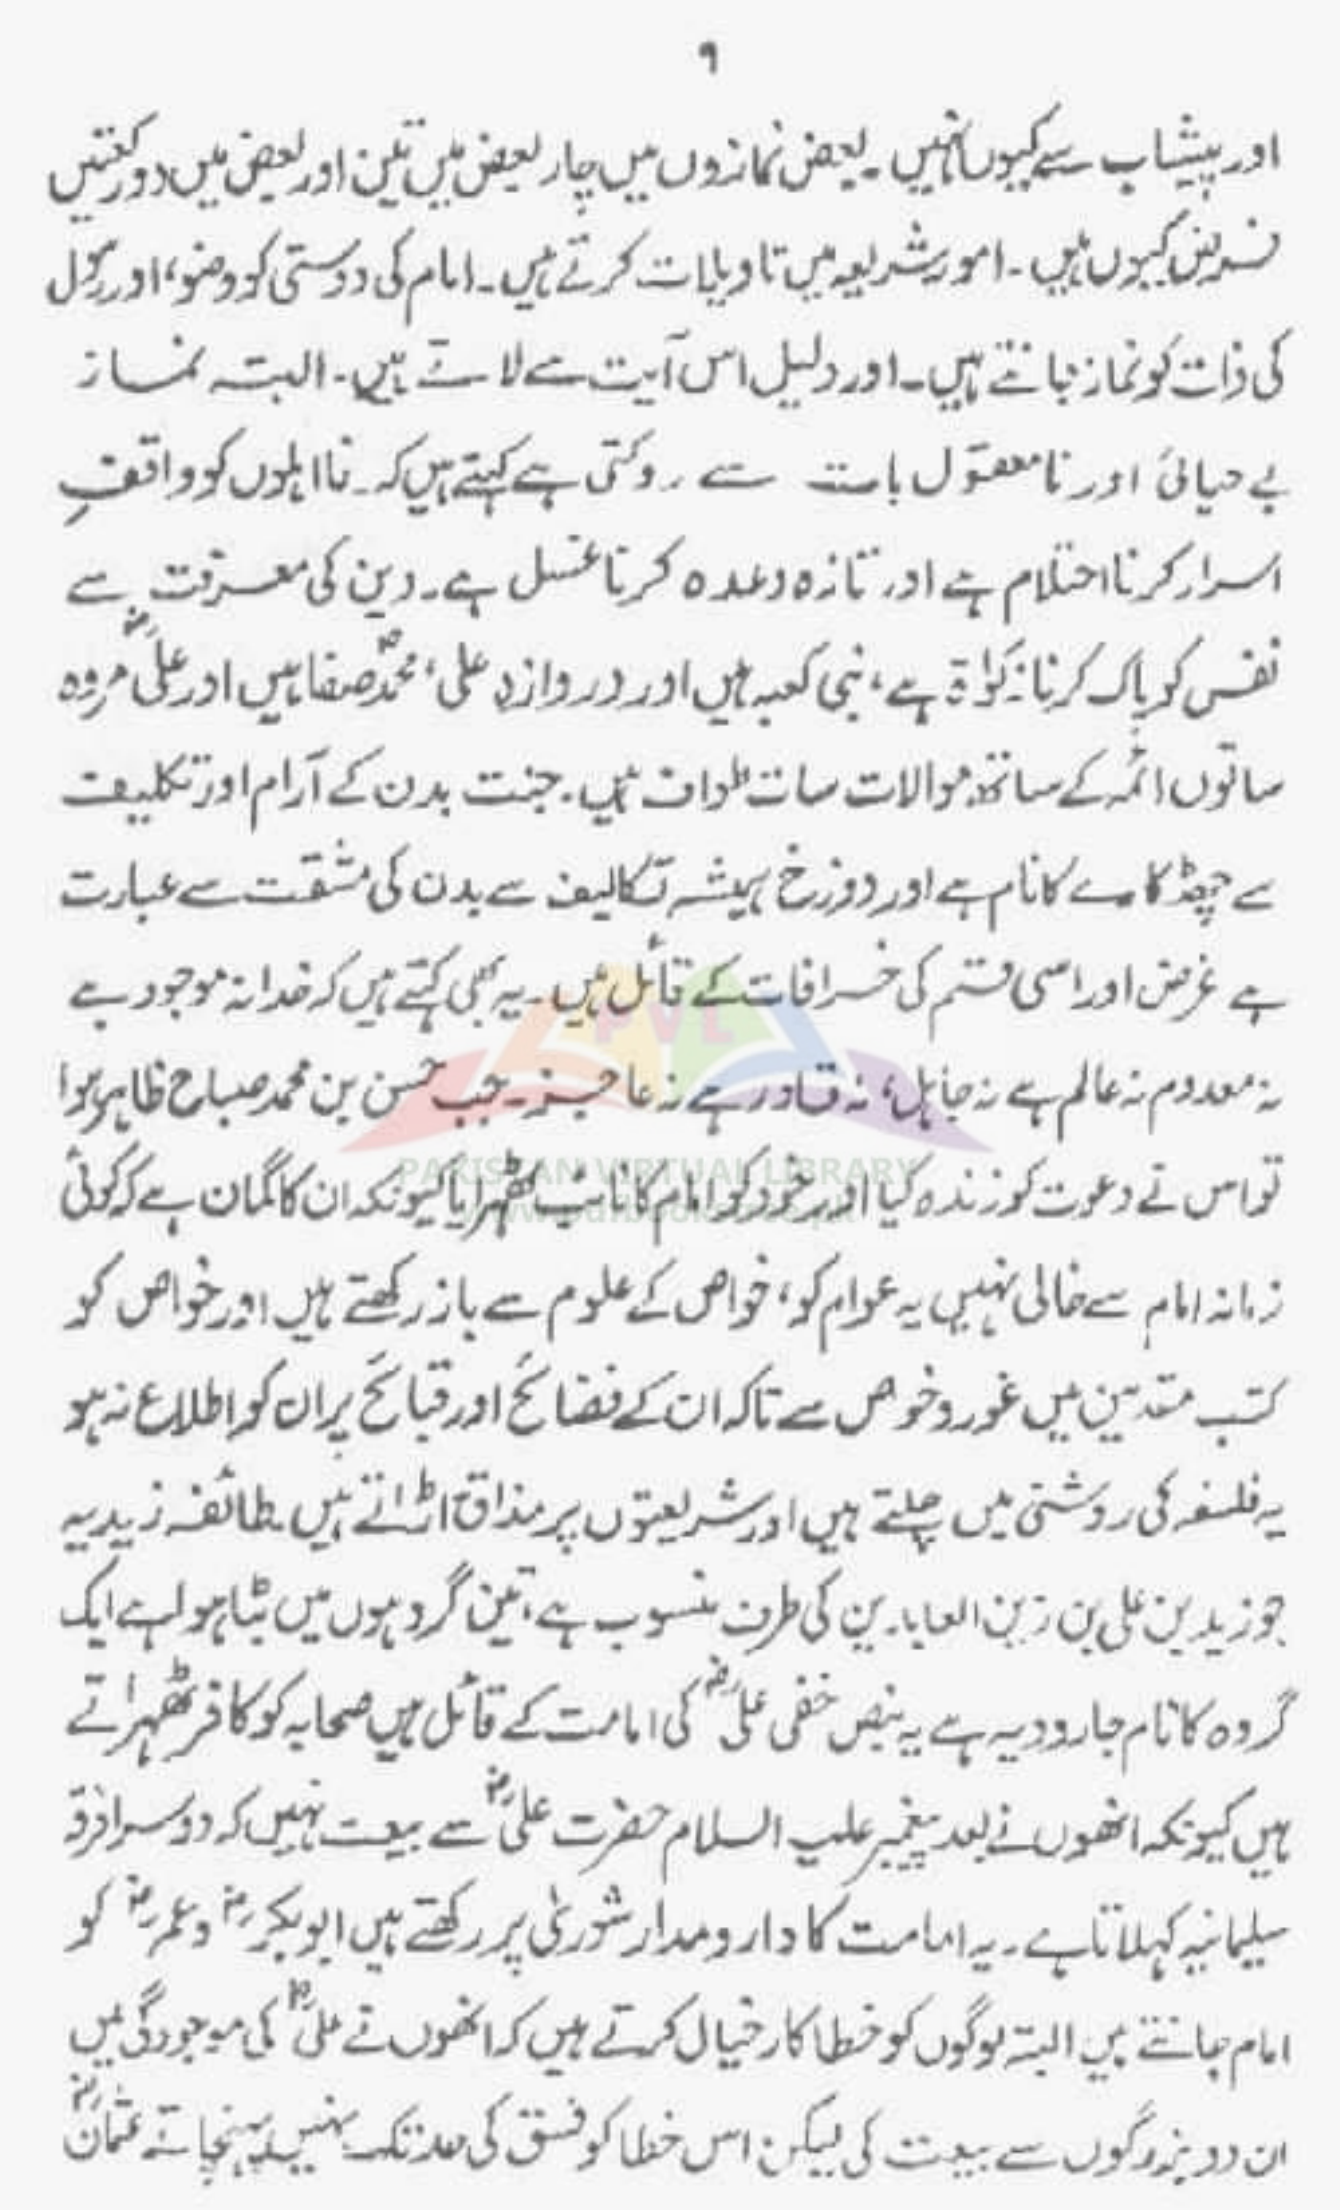 ۹
اور پیشاب سے کیوں نہیں۔ بعض نمازوں میں چار بعض میں تین اور بعض میں دو رکعتیں
فرض کیوں ہیں۔ امور شریعہ میں تاویلات کرتے ہیں۔ امام کی دوستی کو وضو، اور رسول
کی ذات کو نماز جانتے ہیں۔ اور دلیل اس آیت سے لاتے ہیں۔ البتہ نماز
بے حیائی اور نامعقول بات سے روکتی ہے کہتے ہیں کہ۔ نا اہلوں کو واقفِ
اسرار کرنا احتلام ہے اور تازہ وعدہ کرنا غسل ہے۔ دین کی معرفت سے
نفس کو پاک کرنا زکوٰۃ ہے، نبی کعبہ ہیں اور دروازہ علی، محمدؐ صفا ہیں اور علیؓ مروہ
ساتوں ائمہ کے ساتھ موالات سات طواف ہیں۔ جنت بدن کے آرام اور تکلیف
سے چھٹکارے کا نام ہے اور دوزخ ہمیشہ تکالیف سے بدن کی مشقت سے عبارت
ہے غرض اور اسی قسم کی خرافات کے قائل ہیں۔ یہ بھی کہتے ہیں کہ خدا نہ موجود ہے
نہ معدوم نہ عالم ہے نہ جاہل، نہ قادر ہے نہ عاجز۔ جب حسن بن محمد صباح ظاہر ہوا
تو اس نے دعوت کو زندہ کیا اور خود کو امام کا نائب ٹھہرایا کیونکہ ان کا گمان ہے کہ کوئی
زمانہ امام سے خالی نہیں یہ عوام کو، خواص کے علوم سے باز رکھتے ہیں اور خواص کو
کتب متقدمین میں غور و خوص سے تاکہ ان کے فضائح اور قبائح پر ان کو اطلاع نہ ہو
یہ فلسفہ کی روشنی میں چلتے ہیں اور شریعتوں پر مذاق اڑاتے ہیں۔ طائفہ زیدیہ
جو زید بن علی بن زین العابدین کی طرف منسوب ہے، تین گروہوں میں بٹا ہوا ہے ایک
گروہ کا نام جارودیہ ہے یہ بنص خفی علیؓ کی امامت کے قائل ہیں صحابہ کو کافر ٹھہراتے
ہیں کیونکہ انھوں نے بعد پیغمبر علیہ السلام حضرت علیؓ سے بیعت نہیں کہ دوسرا فرقہ
سلیمانیہ کہلاتا ہے۔ یہ امامت کا دارومدار شوریٰ پر رکھتے ہیں ابوبکرؓ و عمرؓ کو
امام جانتے ہیں البتہ لوگوں کو خطا کار خیال کرتے ہیں کہ انھوں نے علیؓ کی موجودگی میں
ان دو بزرگوں سے بیعت کی لیکن اس خطا کو فسق کی حد تک نہیں پہنچاتے عثمانؓ
PVL
PAKISTAN VIRTUAL LIBRARY